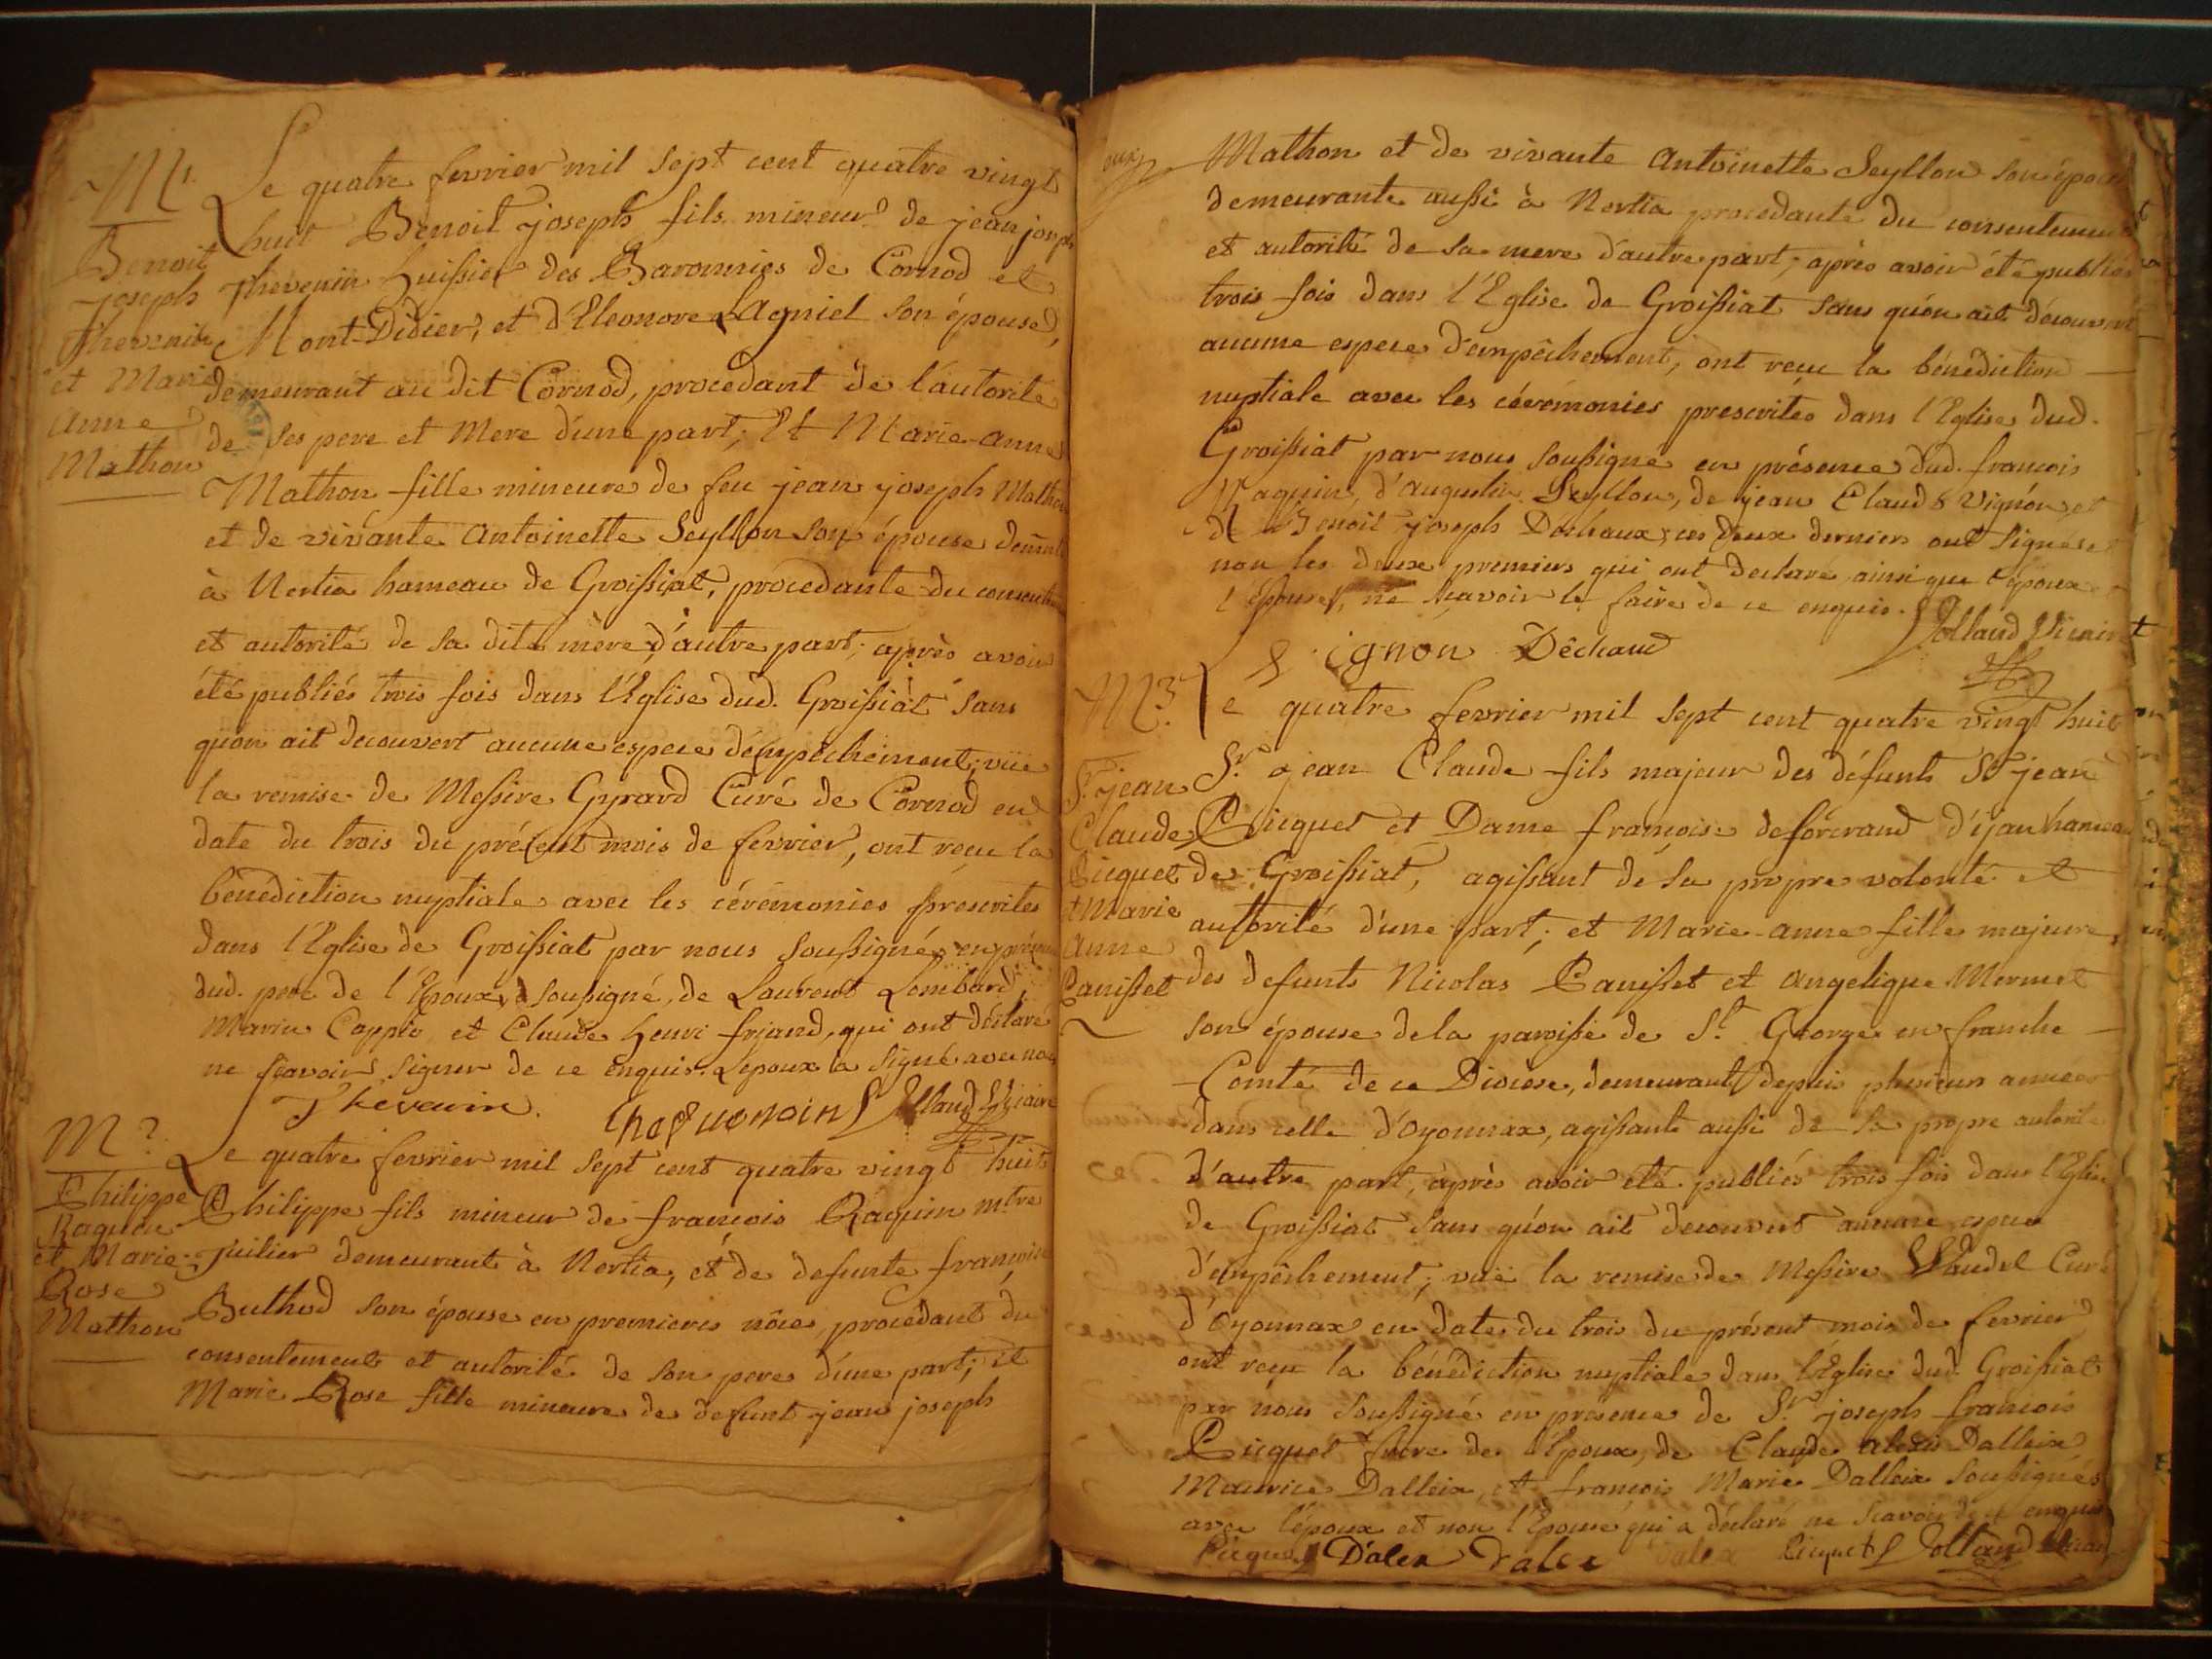 M1.
Benoit
joseph
Thevenin
et Marie
anne
Mathon
Le quatre fevrier mil sept cent quatre vingt
huit Benoit joseph fils mineur de jean joseph
Thevenin huissier des Baronnies de Cornod et
Mont-Didier, et d'Eleonore Lagniel son épouse,
demeurant au dit Cornod, procedant de l'autorité
de ses pere et mere d'une part; Et Marie-anne
Mathon fille mineure de feu jean joseph Mathon
et de vivante antoinette Seyllon son épouse demeurante
à Nertia hameau de Groissiat, procedante du consentement
et autorité de sa dite mère d'autre part; après avoir
été publiés trois fois dans l'Eglise dud. Groissiat sans
qu'on ait decouvert aucune espece d'empêchement; vüe
la remise de Messire Gyrard Curé de Cornod en
date du trois du présent mois de fevrier, ont reçu la
bénédiction nuptiale avec les cérémonies prescrites
dans l'Eglise de Groissiat par nous soussigné en présence
dud. pere de l'Epoux soussigné, de Laurent Lombard
Marin Cappio et Claude henri frjand, qui ont déclaré
ne sçavoir signer de ce enquis. L'époux a signé avec nous
Thevenin. Jolland Vicaire
M2.
Philippe
Raquin
et Marie
Rose
Mathon
Le quatre fevrier mil sept cent quatre vingt huit
Philippe fils mineur de françois Raquin mtre
juilier demeurant à Nertia, et de defunte françoise
Buthod son épouse en premieres nôces, procedant du
consentement et autorité de son pere d'une part; et
Marie Rose fille mineure de defunt jean joseph
Mathon et de vivante antoinette Seyllon son épouse
demeurante aussi à Nertia procedante du consentement
et autorité de sa mere d'autre part; après avoir été publiés
trois fois dans l'Eglise de Groissiat sans qu'on ait découvert
aucune espece d'empêchement, ont reçu la bénédiction
nuptiale avec les cérémonies prescrites dans l'Eglise dud.
Groissiat par nous soussigné en présence dud. francois
Raquin, d'augustin Seyllon, de jean Claude Vignon, et
de Benoit joseph Dechaux; ces deux derniers ont signés et
non les deux premiers qui ont declaré ainsi que l'époux et
l'Epouse, ne sçavoir le faire de ce enquis.
Vignon Dêchaud Jolland Vicaire
M3.
Sr. jean
Claude
Picquet
et Marie
anne
Panisset
Le quatre fevrier mil sept cent quatre vingt huit
Sr. jean Claude fils majeur des défunts Sr jean
Picquet et Dame françoise deforcrand d'ijan hameau
de Groissiat, agissant de sa propre volonté et
autorité d'une part; et Marie-anne fille majeure
des defunts Nicolas Panisset et angelique Mermet
son épouse de la paroisse de St. George en franche
Comté de ce Diocese, demeurant depuis plusieurs années
dans celle d'oyonnax, agissante aussi de sa propre autorité
d'autre part, après avoir été publiés trois fois dans l'Eglise
de Groissiat sans qu'on ait decouvert aucune espece
d'empêchement; vüe la remise de Messire Vaudel Curé
d'oyonnax en date du trois du présent mois de fevrier
ont reçu la bénédiction nuptiale dans l'Eglise dud. Groissiat
par nous soussigné en présence de Sr. joseph francois
Picquet frere de l'Epoux, de Claude alexis Dalleix
Maurice Dalleix, et francois Marie Dalleix soussignés
avec l'époux et non l'Epouse qui a déclaré ne scavoir de ce enquise
Picquet Dalex Dalex Dalex Picquet Jolland Vicaire